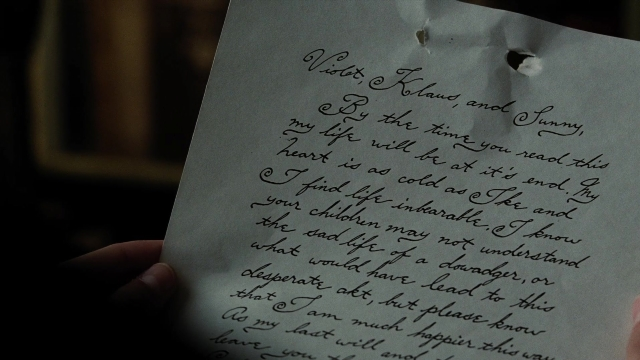 Violet, Klaus, and Sunny,
By the time you read this
my life will be at it's end. My
heart is as cold as Ike and
I find life inbearable. I know
your children may not understand
the sad life of a dowadger, or
what would have lead to this
desperate akt, but please know
that I am much happier this way.
As my last will and
leave you